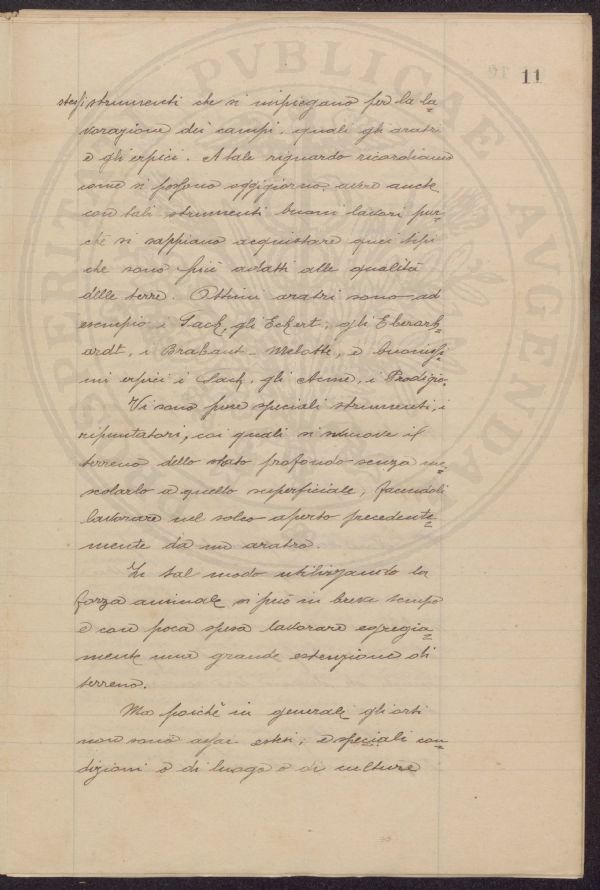 PROSPERITATI PVBLICAE AVGENDAE
11
stessi strumenti che si impiegano per la la-
vorazione dei campi, quali gli aratri
e gli erpici. A tale riguardo ricordiamo
come si possono oggigiorno avere anche
con tali strumenti buoni lavori pur-
chè si sappiano acquistare quei tipi
che sono più adatti alle qualità
delle terre. Ottimi aratri sono ad
esempio i Sack, gli Eckert, gli Eberark-
ardt, i Brabant-Melotte, e buonissi-
mi erpici i Sack, gli Acme, i Prodigio.
Vi sono pure speciali strumenti, i
ripuntatori, coi quali si smuove il
terreno dello stato profondo senza me-
scolarlo a quello superficiale, facendoli
lavorare nel solco aperto precedente-
mente da un aratro.
In tal modo utilizzando la
forza animale si può in breve tempo
e con poca spesa lavorare egregia-
mente una grande estenzione di
terreno.
Ma poichè in generale gli orti
non sono assai estesi, e speciali con-
dizioni o di luogo o di culture